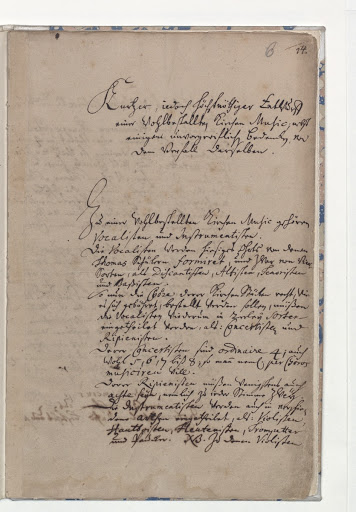 14.
Kurtzer, iedoch höchstnöthiger Entwurff
einer wohlbestallten Kirchen Music; nebst
einigem unvorgreiflichen Bedencken von
dem Verfall derselben.
Zu einer wohlbestellten Kirchen Music gehören
Vocalisten und Instrumentisten.
Die Vocalisten werden hiesiges Ohrts von denen
Thomas Schülern formiret, und zwar von vier
Sorten, als Discantisten, Altisten, Tenoristen
und Bassisten.
So nun die Chöre derer Kirchen Stücken recht, wie
es sich gebühret, bestellt werden sollen, müßen
die Vocalisten wiederum in 2erley Sorten
eingetheilet werden, als: Concertisten und
Ripienisten.
Derer Concertisten sind ordinaire 4; auch
wohl 5, 6, 7 biß 8; so man nemlich per Choros
musiciren will.
Derer Ripienisten müßen wenigstens auch
achte seyn, nemlich zu ieder Stimme zwey.
Die Instrumentisten werden auch in verschiedene
Arthen eingetheilet, als: Violisten,
Hautboisten, Fleutenisten, Trompetter
und Paucker. NB. Zu denen Violisten